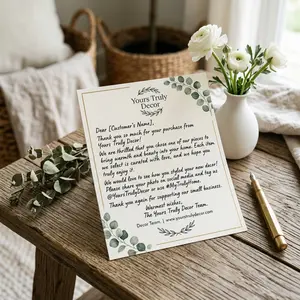 Yours Truly
Decor
Dear [Customer's Name],
Thank you so much for your purchase from
Yours Truly Decor!
We are thrilled that you chose one of our pieces to
bring warmth and beauty into your home. Each item
we select is curated with love, and we hope you
truly enjoy it.
We would love to see how you styled your new decor!
Please share your photo on social media and tag us
@YoursTrulyDecor or use #MyTrulyHome
Thank you again for supporting our small business.
Warmest wishes,
The Yours Truly Decor Team.
Decor Team. | www.yourstrulydecor.com